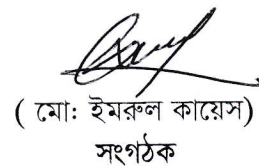 ( মো: ইমরুল কায়েস)
সংগঠক